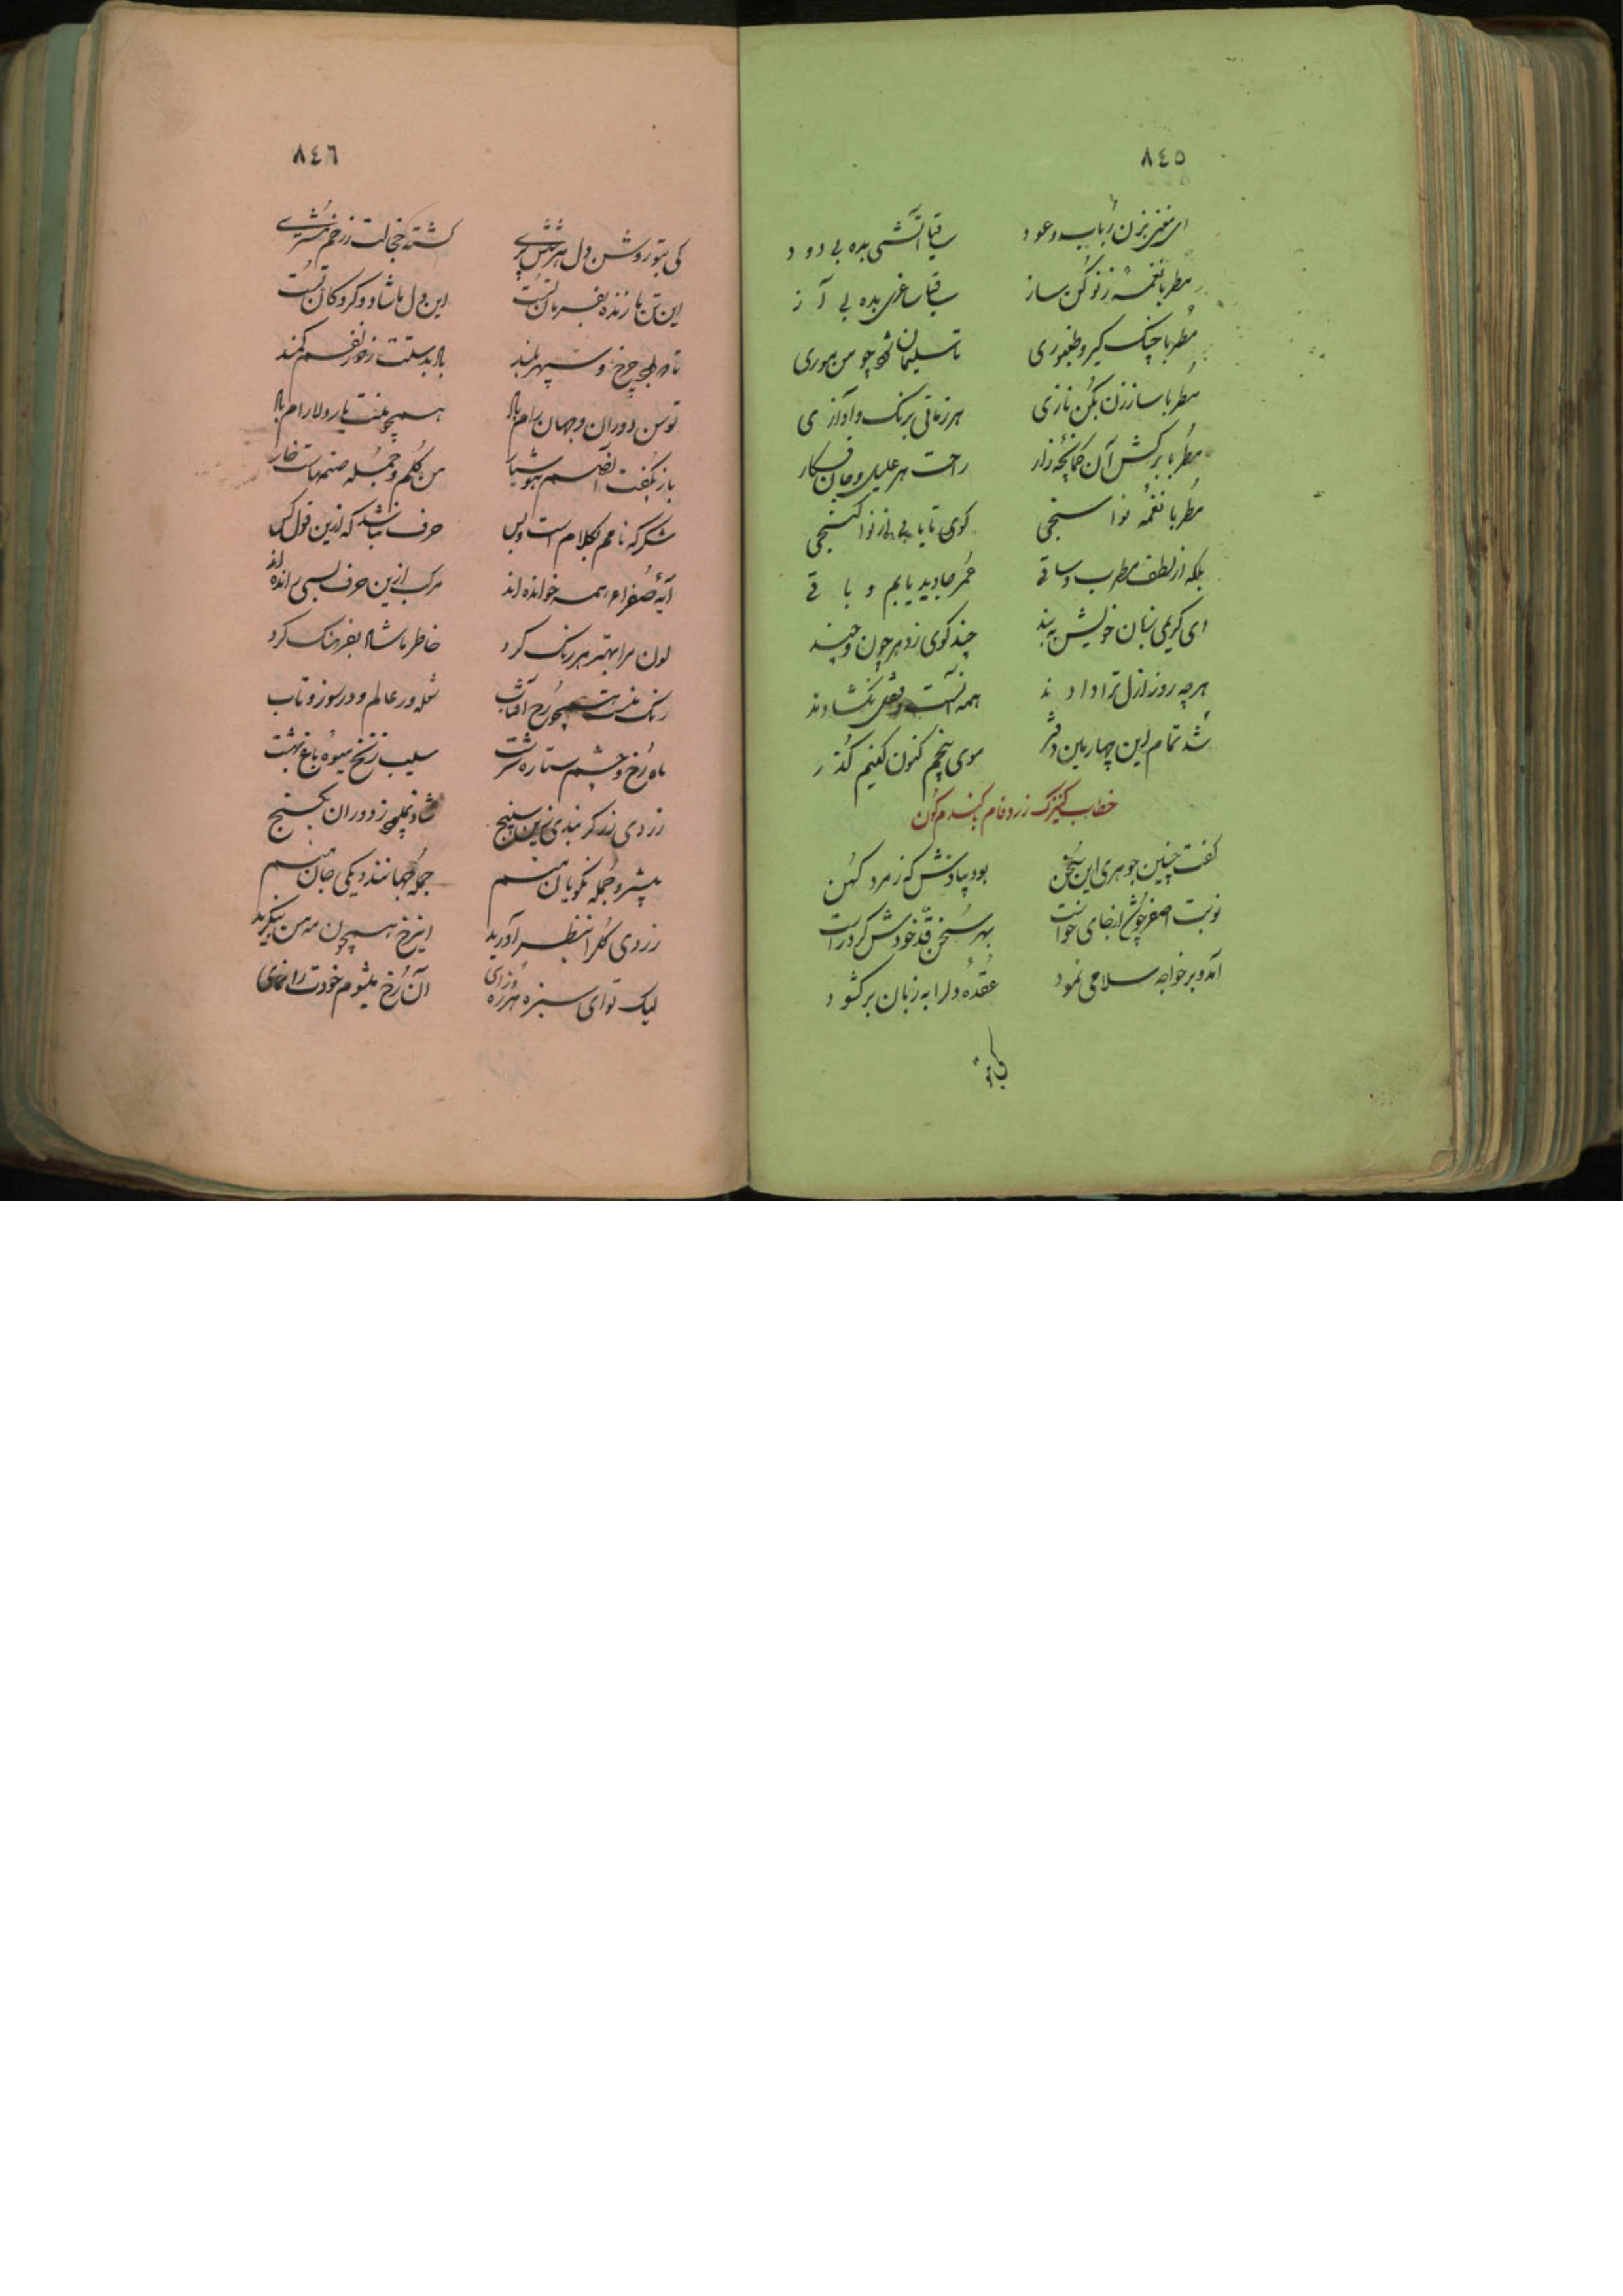 ٨٤٥
ای مغنی بزن رباب و عود ساقیا آتشی بده بی دود
مطربا نغمه ز نو کن ساز ساقیا ساغری بده بی آز
مطربا چنک کیر و طنبوری تا سلیمان شود چو من موری
مطربا ساز زن بکن نازی هر زمانی برنک و آوازی
مطربا برکش آن کمانچه زار راحت هر علیل و جان فکار
مطربا نغمه نوا سنجی کوی تا یابی از نوا کنجی
بلکه از لطف مطرب و ساقی عمر جاوید یابم و باقی
ای کریمی زبان خویش به بند چند کوی ز هر چون و چند
هر چه روز ازل ترا دادند همه آنست و قفل بکشادند
شد تمام این چهارمین دفتر سوی پنجم کنون کنیم کذر
خطاب کنیزک زرد فام بکندم کون
کفت چنین جوهری این سخن بود بیادش که ز مرد کهن
نوبت اصفر چو شد از جای خواست بهر سخن قد خودش کرد راست
آمد و بر خواجه سلامی نمود عقده دل را به زبان بر کشود
کی بتو
٨٤٦
کی بتو روشن دل هر مشتری کشته خجالت ز رخم مشتری
این تن ما زنده بفرمان تست این دل ما شاد و کرو کان تست
تا بود چرخ و سپهر بلند باد بدستت ز خور نفسم کمند
توسن دوران و جهان رام باد همچو منت یار و دلارام باد
باز بکفت آنصنم هوشیار من کلم و جمله صنمهاست خار
شکر که نامم بکلام است و بس حرف نباشد که ازین قول کس
آیه صفراء همه خوانده اند مرکب ازین حرف بسی رانده اند
لون مرا بهتر هر رنک کرد خاطر ما شاد بفرهنک کرد
رنک منست همچو رخ آفتاب شعله ور عالم و در سوز و تاب
ماه رخ و چشم ستاره سرشت سیب زنخ میوه باغ بهشت
زردی زر کر نبدی زین سپنج شاد نمی‌بود ز دوران بکنج
پیشرو جمله نکویان منم جمله جهانند و یکی جان منم
زردی کل را بنظر آورید این رخ همچون مه من بنکرید
لیک تو ای سبزه هرزه درای آن رخ میشوم خودت را نمای